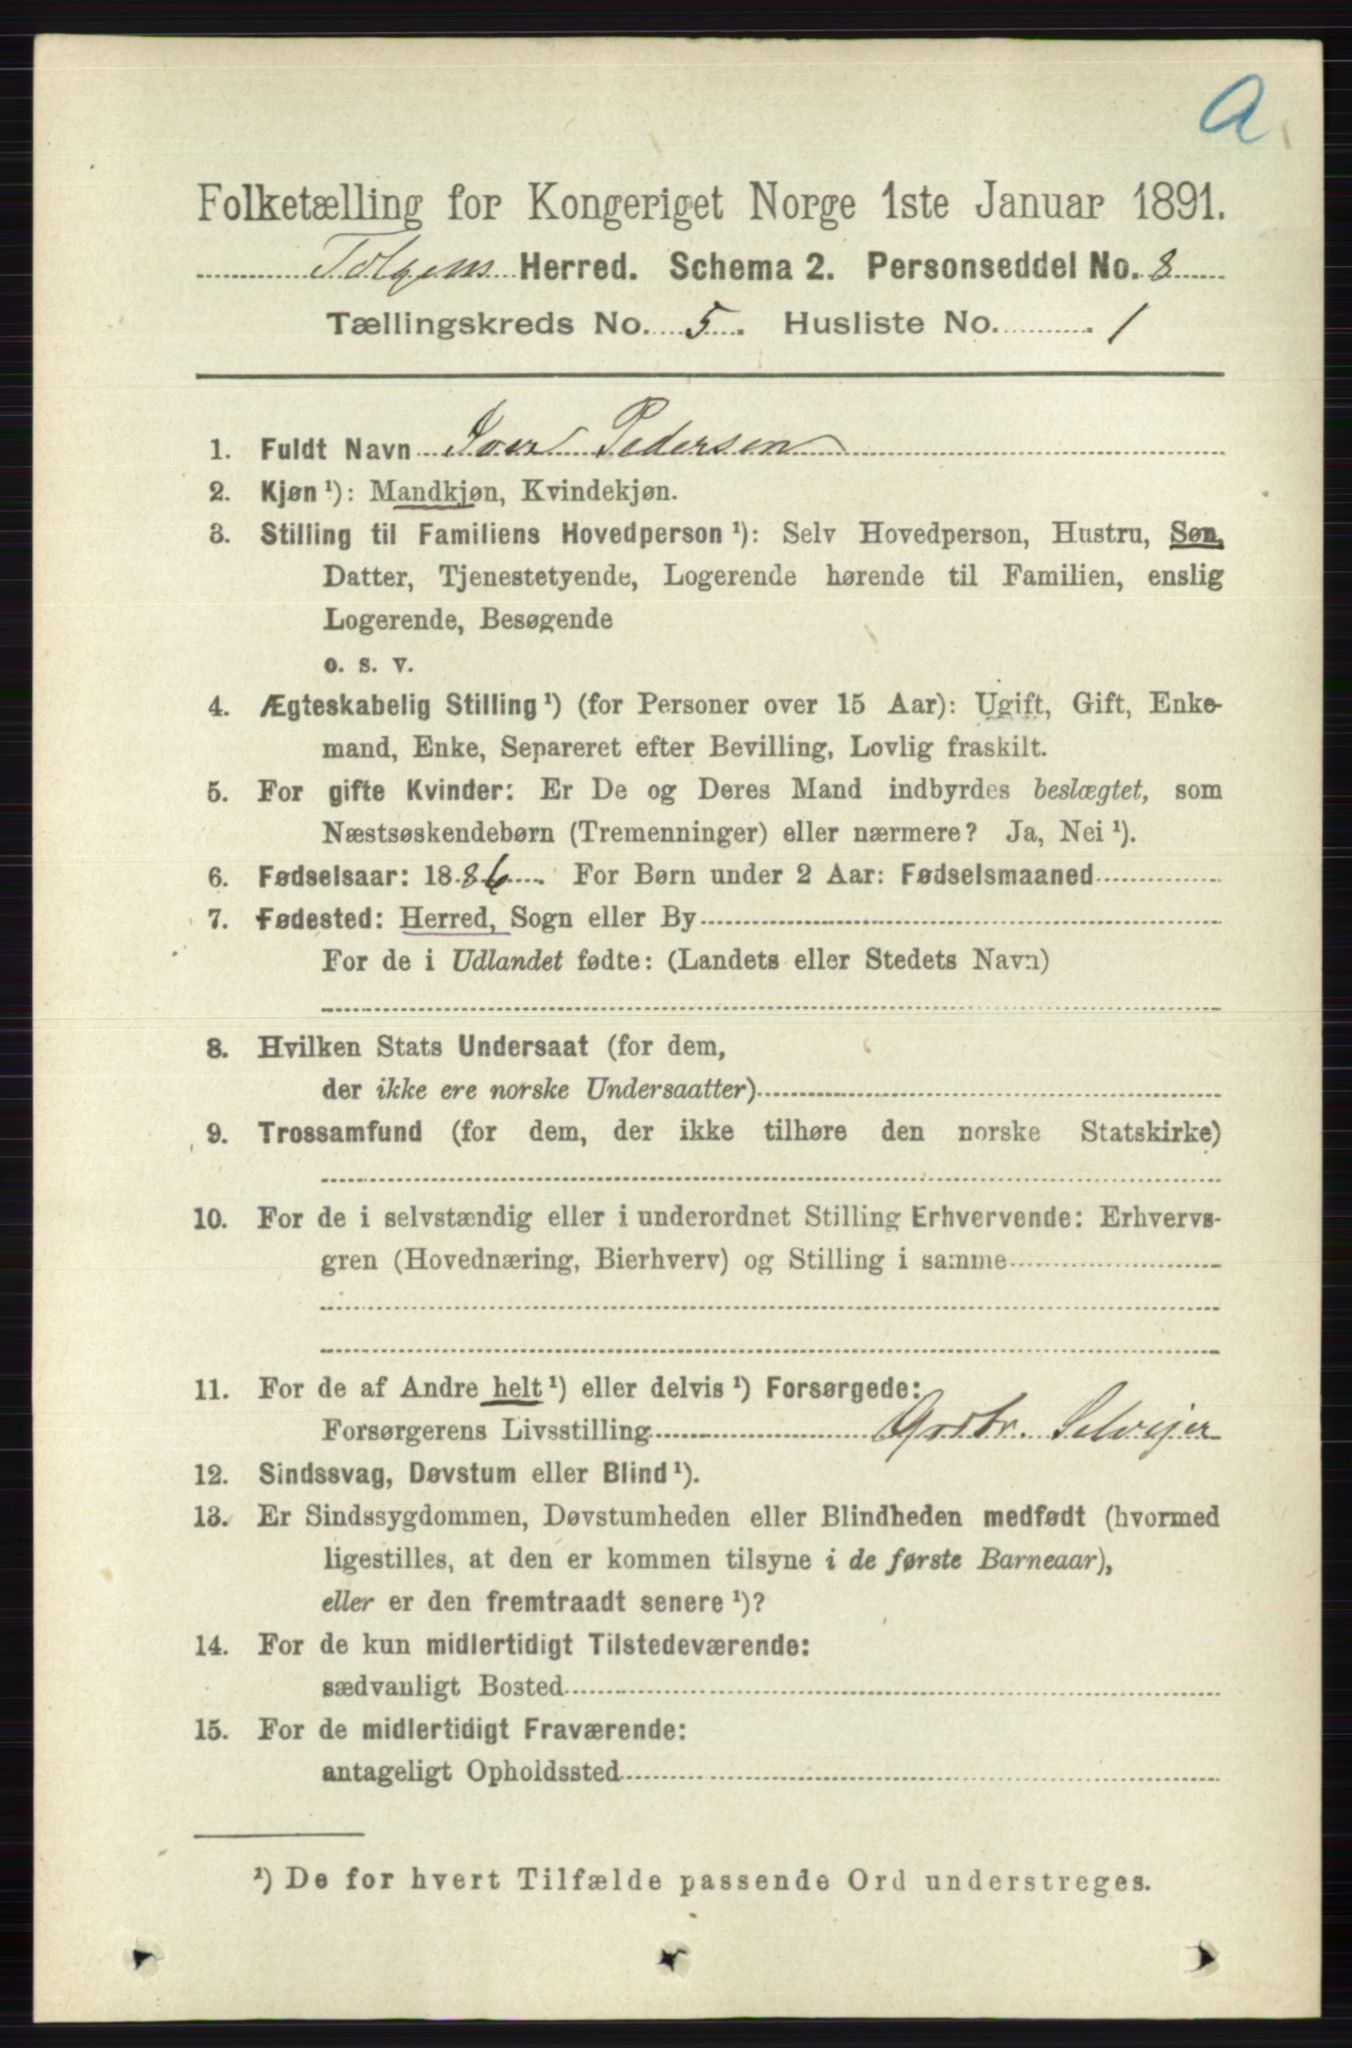 a
Folketælling for Kongeriget Norge 1ste Januar 1891.
Tolgens Herred. Schema 2. Personseddel No. 8
Tællingskreds No. 5. Husliste No. 1
1. Fuldt Navn Iver Pedersen
2. Kjøn ¹): Mandkjøn, Kvindekjøn.
3. Stilling til Familiens Hovedperson ¹): Selv Hovedperson, Hustru, Søn,
Datter, Tjenestetyende, Logerende hørende til Familien, enslig
Logerende, Besøgende
o. s. v.
4. Ægteskabelig Stilling ¹) (for Personer over 15 Aar): Ugift, Gift, Enke-
mand, Enke, Separeret efter Bevilling, Lovlig fraskilt.
5. For gifte Kvinder: Er De og Deres Mand indbyrdes beslægtet, som
Næstsøskendebørn (Tremenninger) eller nærmere? Ja, Nei ¹).
6. Fødselsaar: 1886. For Børn under 2 Aar: Fødselsmaaned
7. Fødested: Herred, Sogn eller By
For de i Udlandet fødte: (Landets eller Stedets Navn)
8. Hvilken Stats Undersaat (for dem,
der ikke ere norske Undersaatter)
9. Trossamfund (for dem, der ikke tilhøre den norske Statskirke)
10. For de i selvstændig eller i underordnet Stilling Erhvervende: Erhvervs-
gren (Hovednæring, Bierhverv) og Stilling i samme
11. For de af Andre helt ¹) eller delvis ¹) Forsørgede:
Forsørgerens Livsstilling Grdbr. Selveier
12. Sindssvag, Døvstum eller Blind ¹).
13. Er Sindssygdommen, Døvstumheden eller Blindheden medfødt (hvormed
ligestilles, at den er kommen tilsyne i de første Barneaar),
eller er den fremtraadt senere ¹)?
14. For de kun midlertidigt Tilstedeværende:
sædvanligt Bosted
15. For de midlertidigt Fraværende:
antageligt Opholdssted
¹) De for hvert Tilfælde passende Ord understreges.